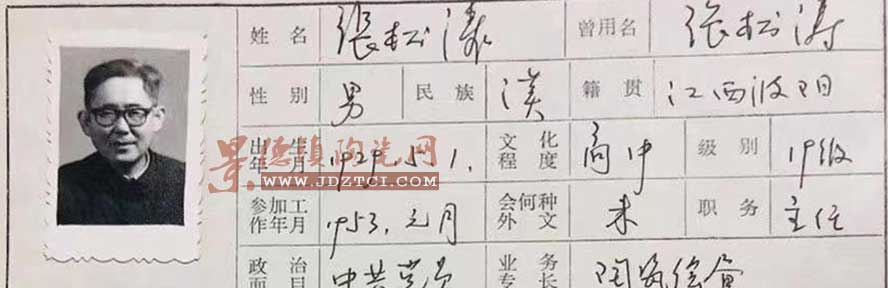 姓名 張松濤 曾用名 張松涛
性别 男 民族 汉 籍贯 江西波阳
出生年月 1929.5.1. 文化程度 高中 级别 19级
景德镇陶瓷网
WWW.JDZTCI.COM
参加工作年月 1953.元月 会何种外文 未 职务 主任
政治面目 中共党员 业务专长 陶瓷绘画